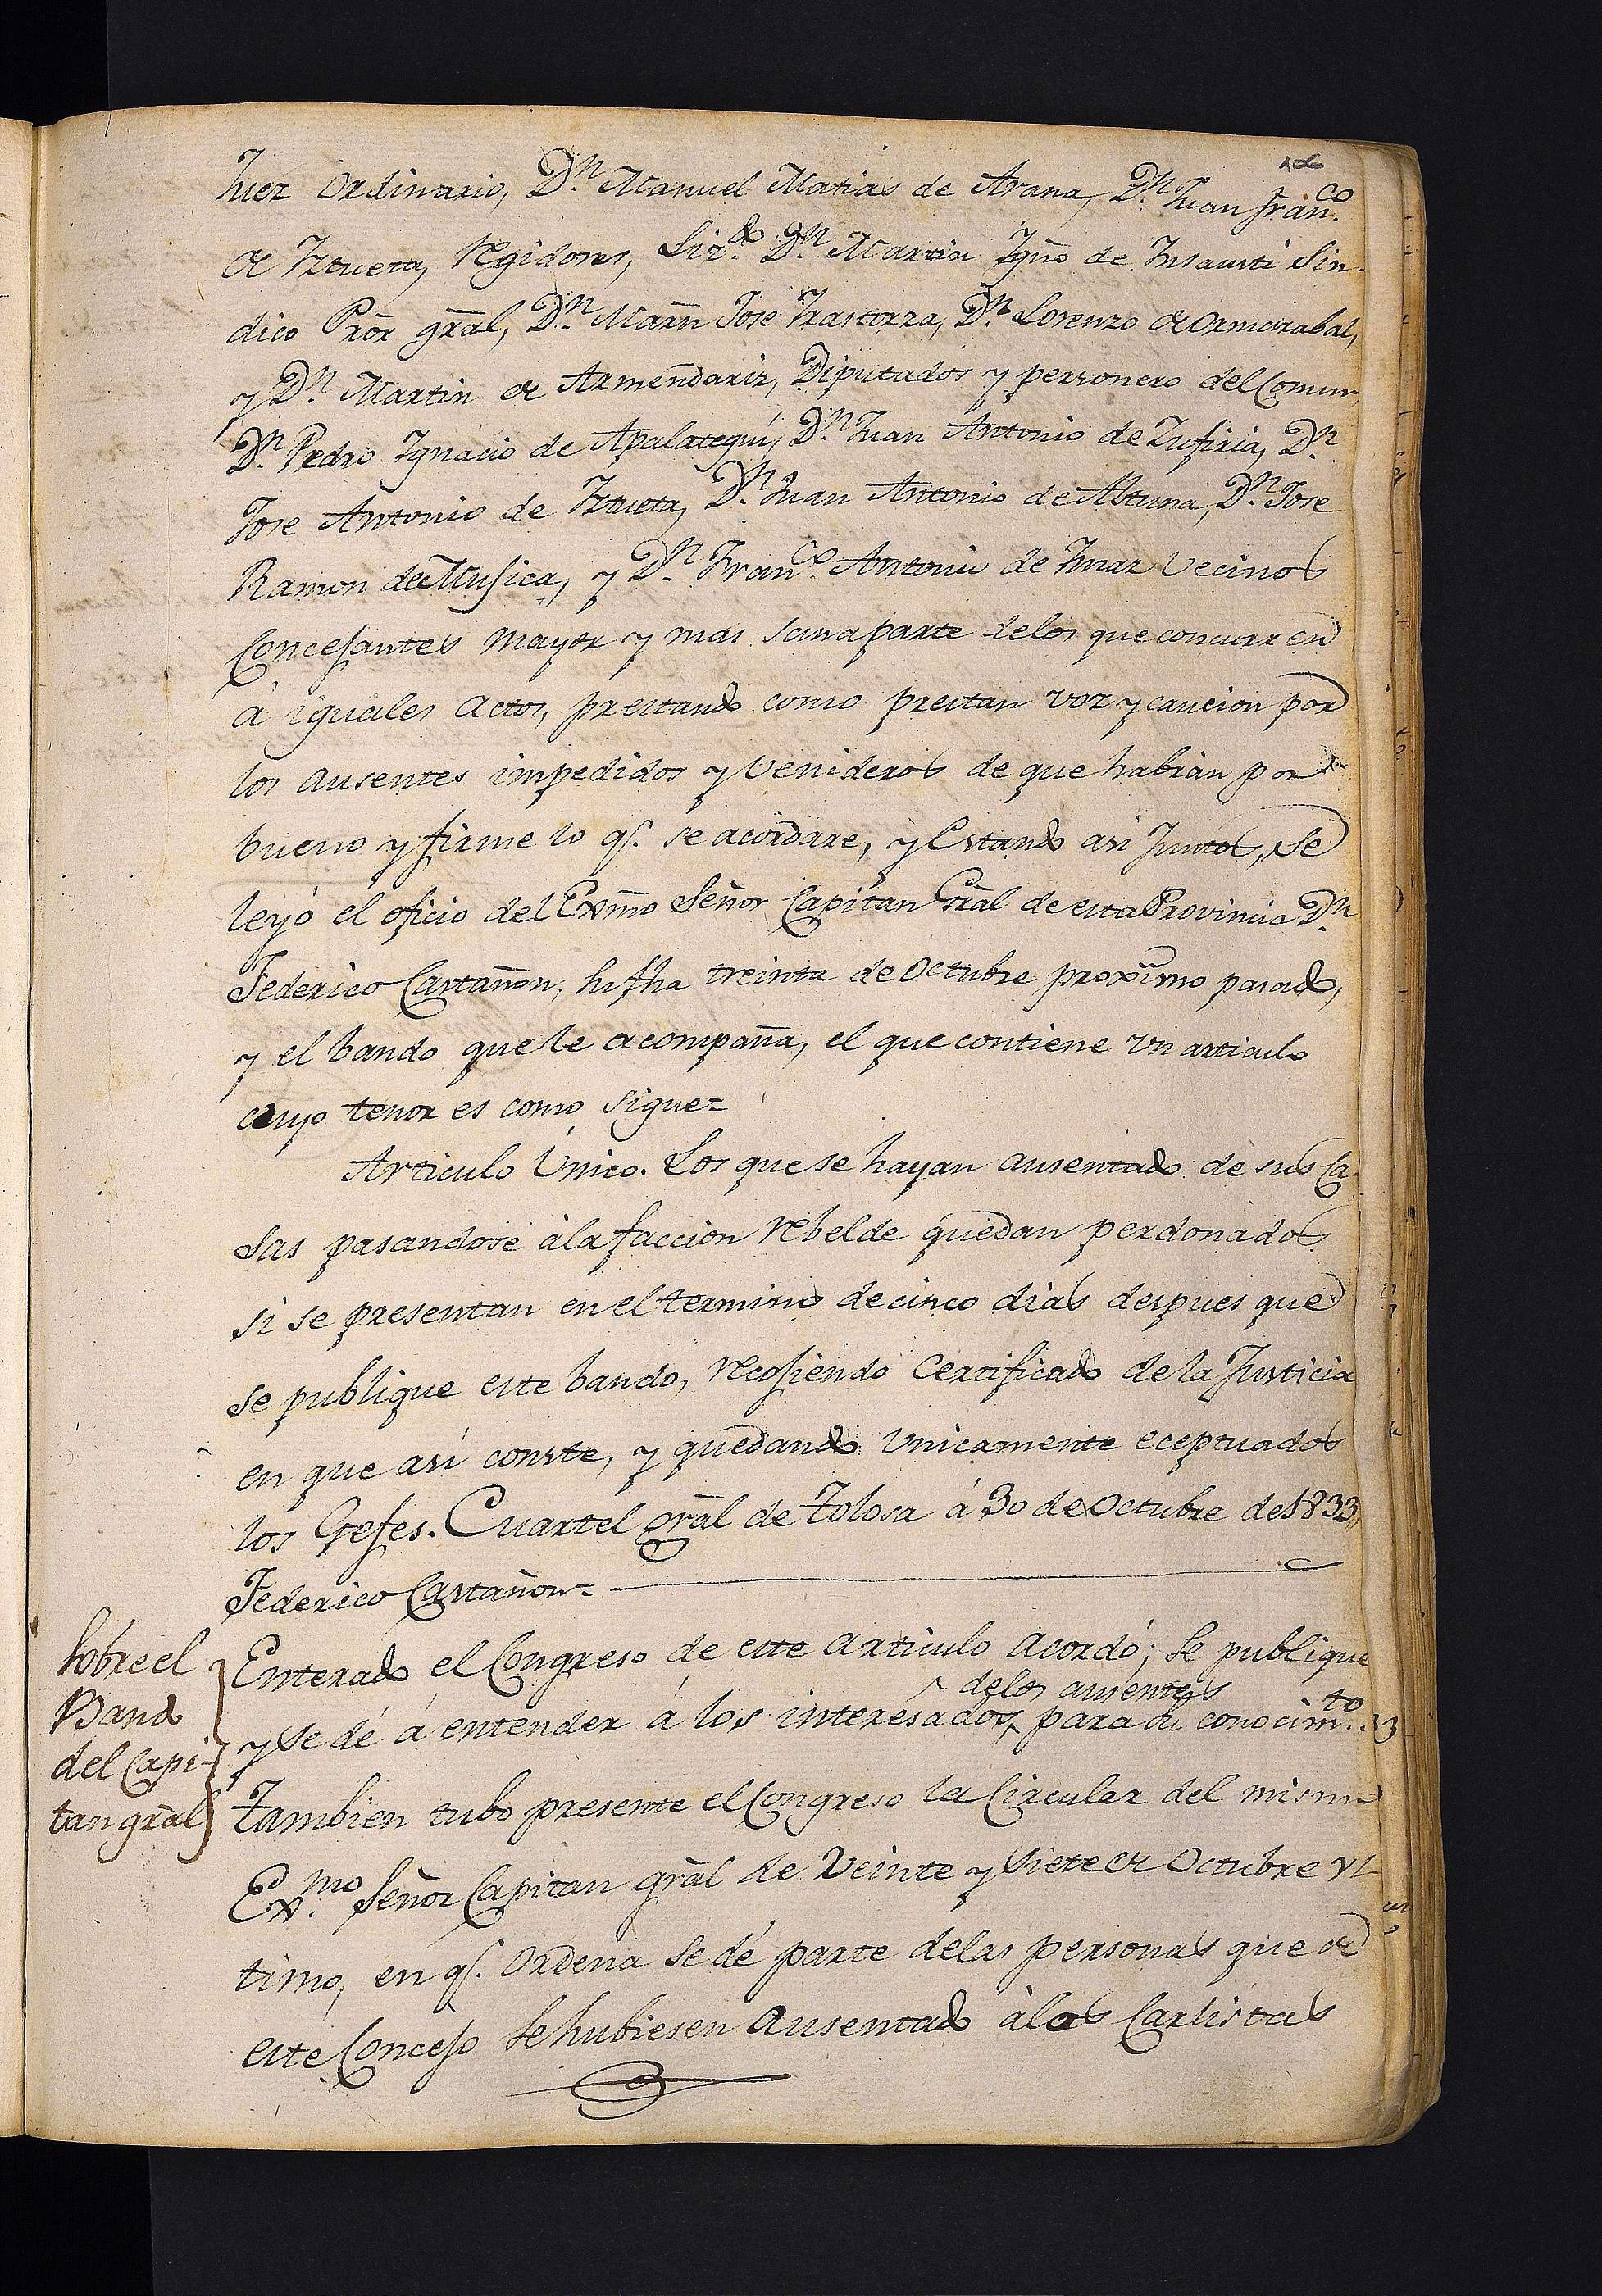 Juez Ordinario, Dn. Manuel Matias de Arana, Dn. Juan Franco.
de Iztueta, Regidores, Lizdo. Dn. Martin Igno de Insausti Sin-
dico Pror gral, Dn. Marn Jose Irastorza, Dn. Lorenzo de Ormazabal,
y Dn. Martin de Armendariz, Diputados y personero del Comun,
Dn. Pedro Ignacio de Apalategui, Dn. Juan Antonio de Zufiria, Dn.
Jose Antonio de Iztueta, Dn. Juan Antonio de Altuna, Dn. Jose
Ramon de Mujica, y Dn. Franco. Antonio de Imaz Vecinos
Concejantes mayor y mas sana parte delos que concurren
á iguales actos, prestando como prestan voz y caucion por
los ausentes impedidos y Venideros de que habian por
bueno y firme lo q. se acordare, y Estando asi Juntos, se
leyó el oficio del Exmo Señor Capitan Gral de esta Provincia Dn.
Federico Castañon, su fha treinta de Octubre proximo pasado,
y el bando que le acompaña, el que contiene un articulo
cuyo tenor es como sigue=
Articulo Único. Los que se hayan ausentado de sus Ca-
sas pasandose ála faccion rebelde quedan perdonados
si se presentan en el termino de cinco dias despues que
se publique este bando, recojiendo Certificado de la Justicia
en que asi conste, y quedando Unicamente eceptuados
los Gefes. Cuartel gral de Tolosa á 30 de Octubre de 1833,,
Federico Castañon=
Sobre el
Bando
del Capi-
tan gral
Enterado el Congreso de este articulo acordó; se publique
delos ausentes
y se dé á entender á los interesados para su conocimto..
Tambien tubo presente el Congreso la Circular del mismo
Exmo. Señor Capitan gral de Veinte y Siete de Octubre ul-
timo, en q. Ordena se dé parte delas personas que de
este Concejo se hubiesen ausentado álos Carlistas